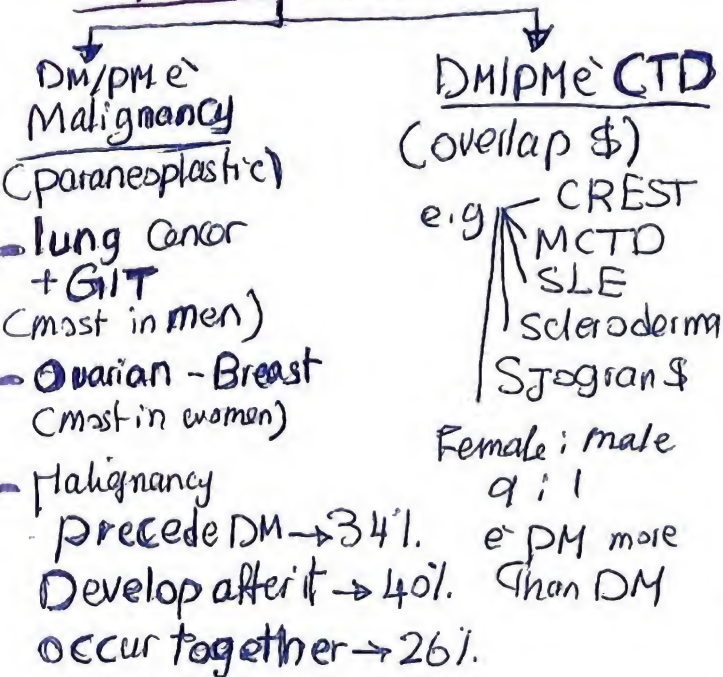 DM/PM è
Malignancy
(paraneoplastic)
- lung Cancor
+ GIT
(most in men)
- Ovarian - Breast
(most in women)
- Malignancy
precede DM → 34%.
Develop after it → 40%.
occur together → 26%.
DM/PM è CTD
(overlap $)
e.g CREST
MCTD
SLE
Scleroderma
Sjogran $
Female : male
9 : 1
è PM more
than DM